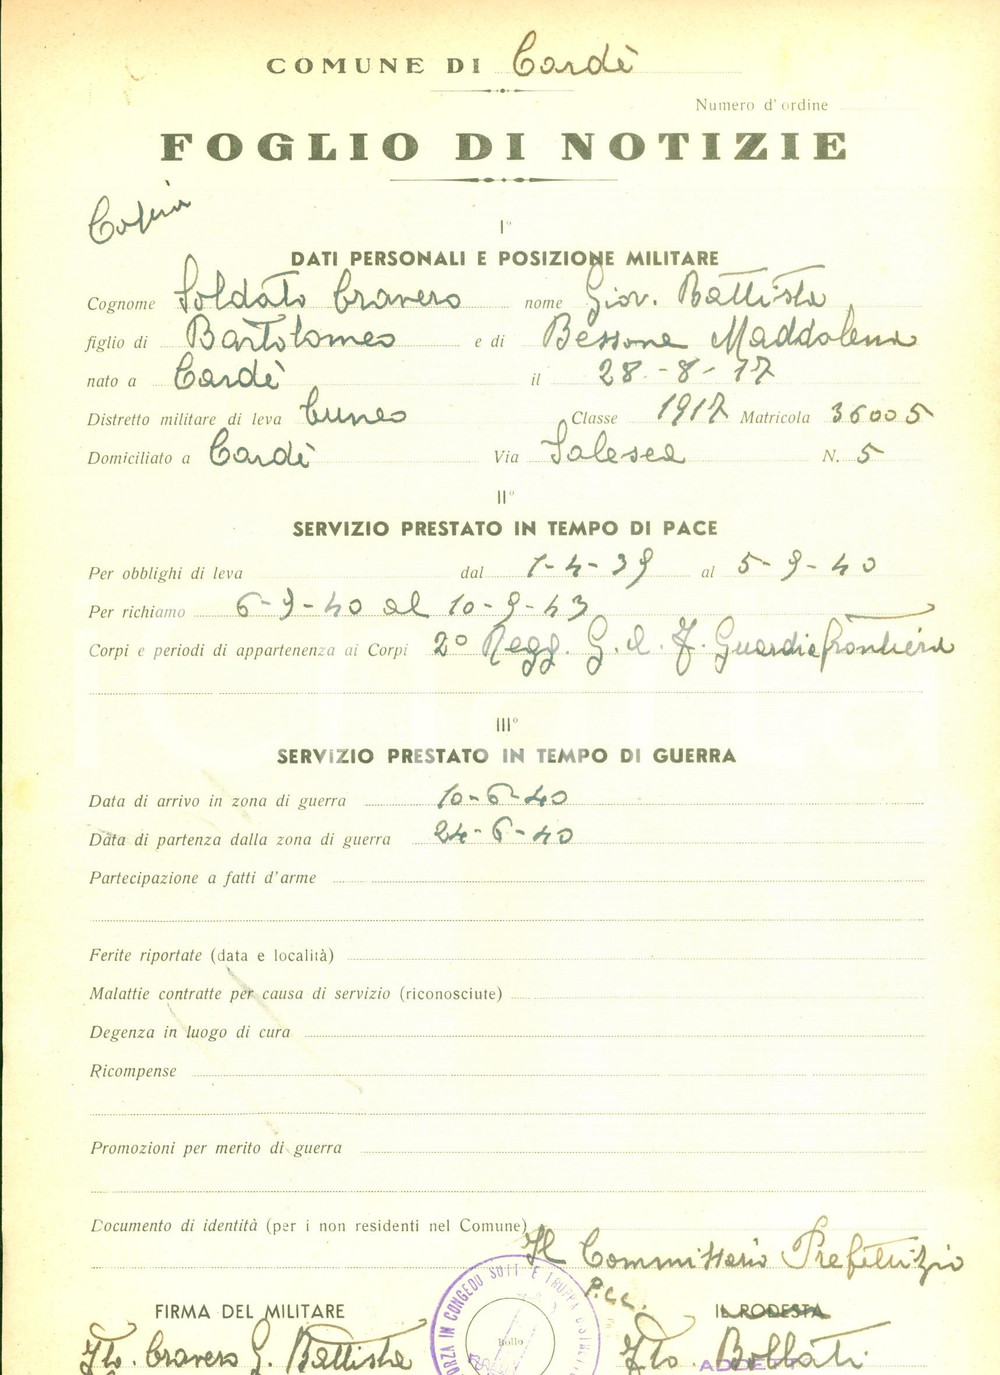 COMUNE DI Cardè
Numero d'ordine
FOGLIO DI NOTIZIE
Copia
I°
DATI PERSONALI E POSIZIONE MILITARE
Cognome Soldato Cravero nome Giov. Battista
figlio di Bartolomeo e di Bessone Maddalena
nato a Cardè il 28-8-17
Distretto militare di leva Cuneo Classe 1917 Matricola 36005
Domiciliato a Cardè Via Salesea N. 5
II°
SERVIZIO PRESTATO IN TEMPO DI PACE
Per obblighi di leva dal 1-4-39 al 5-9-40
Per richiamo 6-9-40 al 10-9-43
Corpi e periodi di appartenenza ai Corpi 2° Regg. G. a. F. Guardia frontiera
III°
SERVIZIO PRESTATO IN TEMPO DI GUERRA
Data di arrivo in zona di guerra 10-6-40
Data di partenza dalla zona di guerra 24-6-40
Partecipazione a fatti d'arme
Ferite riportate (data e località)
Malattie contratte per causa di servizio (riconosciute)
Degenza in luogo di cura
Ricompense
Promozioni per merito di guerra
Documento di identità (per i non residenti nel Comune)
Il Commissario Prefettizio
P.C.C.
FIRMA DEL MILITARE IL PODESTA
FORZA IN CONGEDO SOTT. E TRUPPA DISTRE
Bollo
Fto. Cravero G. Battista Fto. Bollati
ADDETT